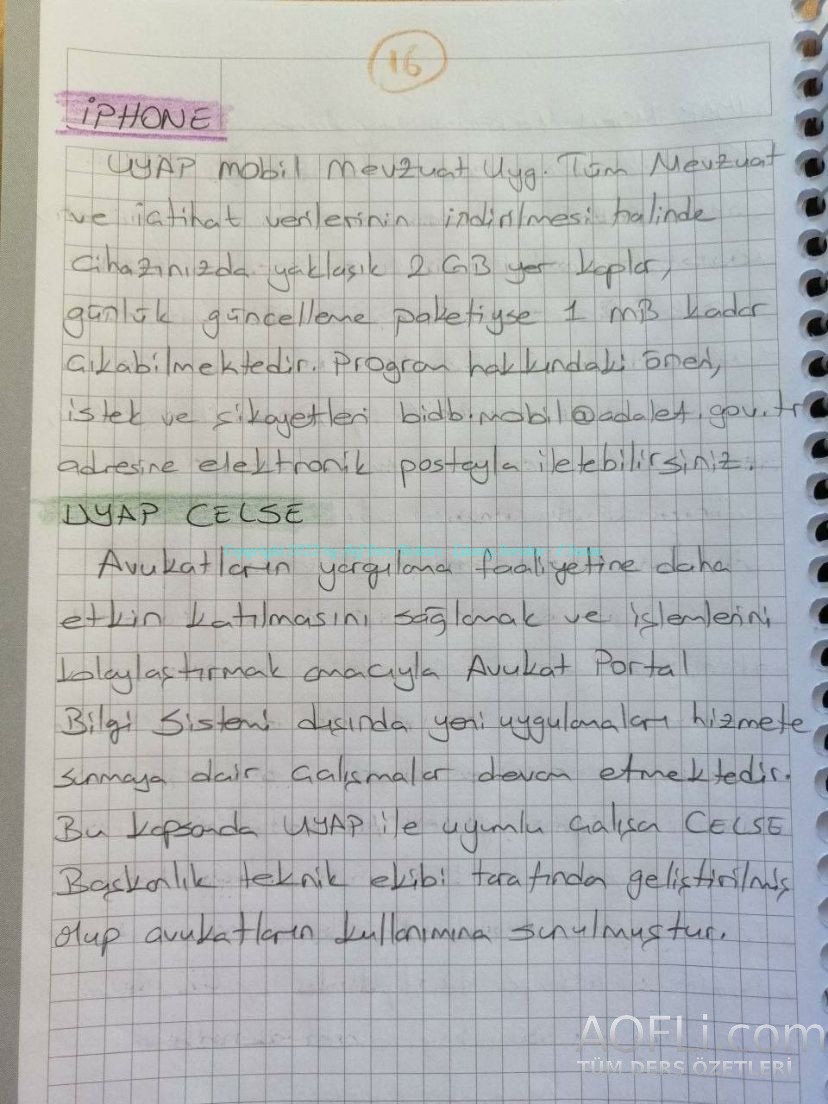 16
İPHONE
UYAP mobil Mevzuat Uyg. Tüm Mevzuat
ve içtihat verilerinin indirilmesi halinde
cihazınızda yaklaşık 2 GB yer kaplar,
günlük güncelleme paketiyse 1 MB kadar
çıkabilmektedir. Program hakkındaki öneri,
istek ve şikayetleri bidb.mobil@adalet.gov.tr
adresine elektronik postayla iletebilirsiniz.
UYAP CELSE
Avukatların yargılama faaliyetine daha
etkin katılmasını sağlamak ve işlemlerini
kolaylaştırmak amacıyla Avukat Portal
Bilgi Sistemi dışında yeni uygulamaları hizmete
sunmaya dair çalışmalar devam etmektedir.
Bu kapsamda UYAP ile uyumlu çalışan CELSE
Başkanlık teknik ekibi tarafından geliştirilmiş
olup avukatların kullanımına sunulmuştur.
AOFLi.com
TÜM DERS ÖZETLERİ